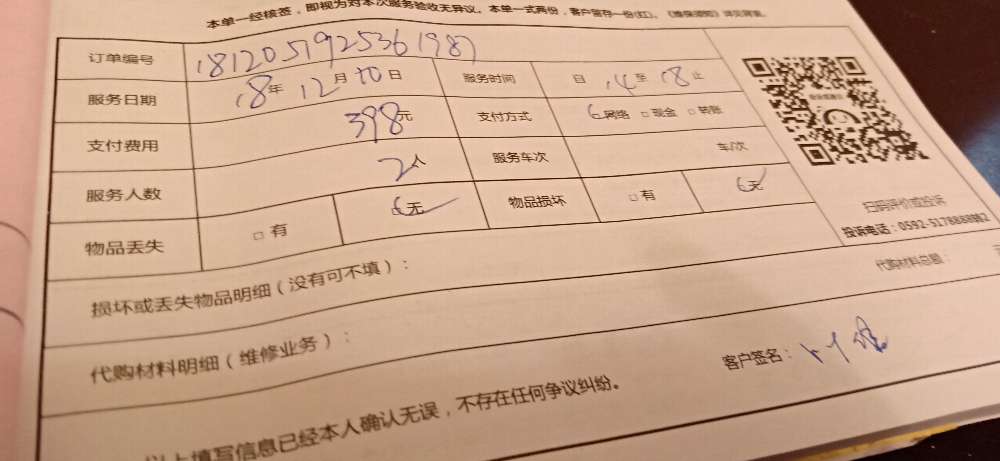 本单一经核签，即视为对本次服务验收无异议。本单一式两份，客户留存一份(红)。《维保须知》详见背面。
订单编号 1812051925361987
服务日期 18年12月10日 服务时间 自14至18止
支付费用 398元 支付方式 网络 □现金 □转账
服务人数 2人 服务车次 车/次
物品丢失 □有 无 物品损坏 □有 无
扫码评价或投诉
投诉电话：0592-5178888转2
损坏或丢失物品明细（没有可不填）：
代购材料总额：
代购材料明细（维修业务）：
客户签名：
以上填写信息已经本人确认无误，不存在任何争议纠纷。